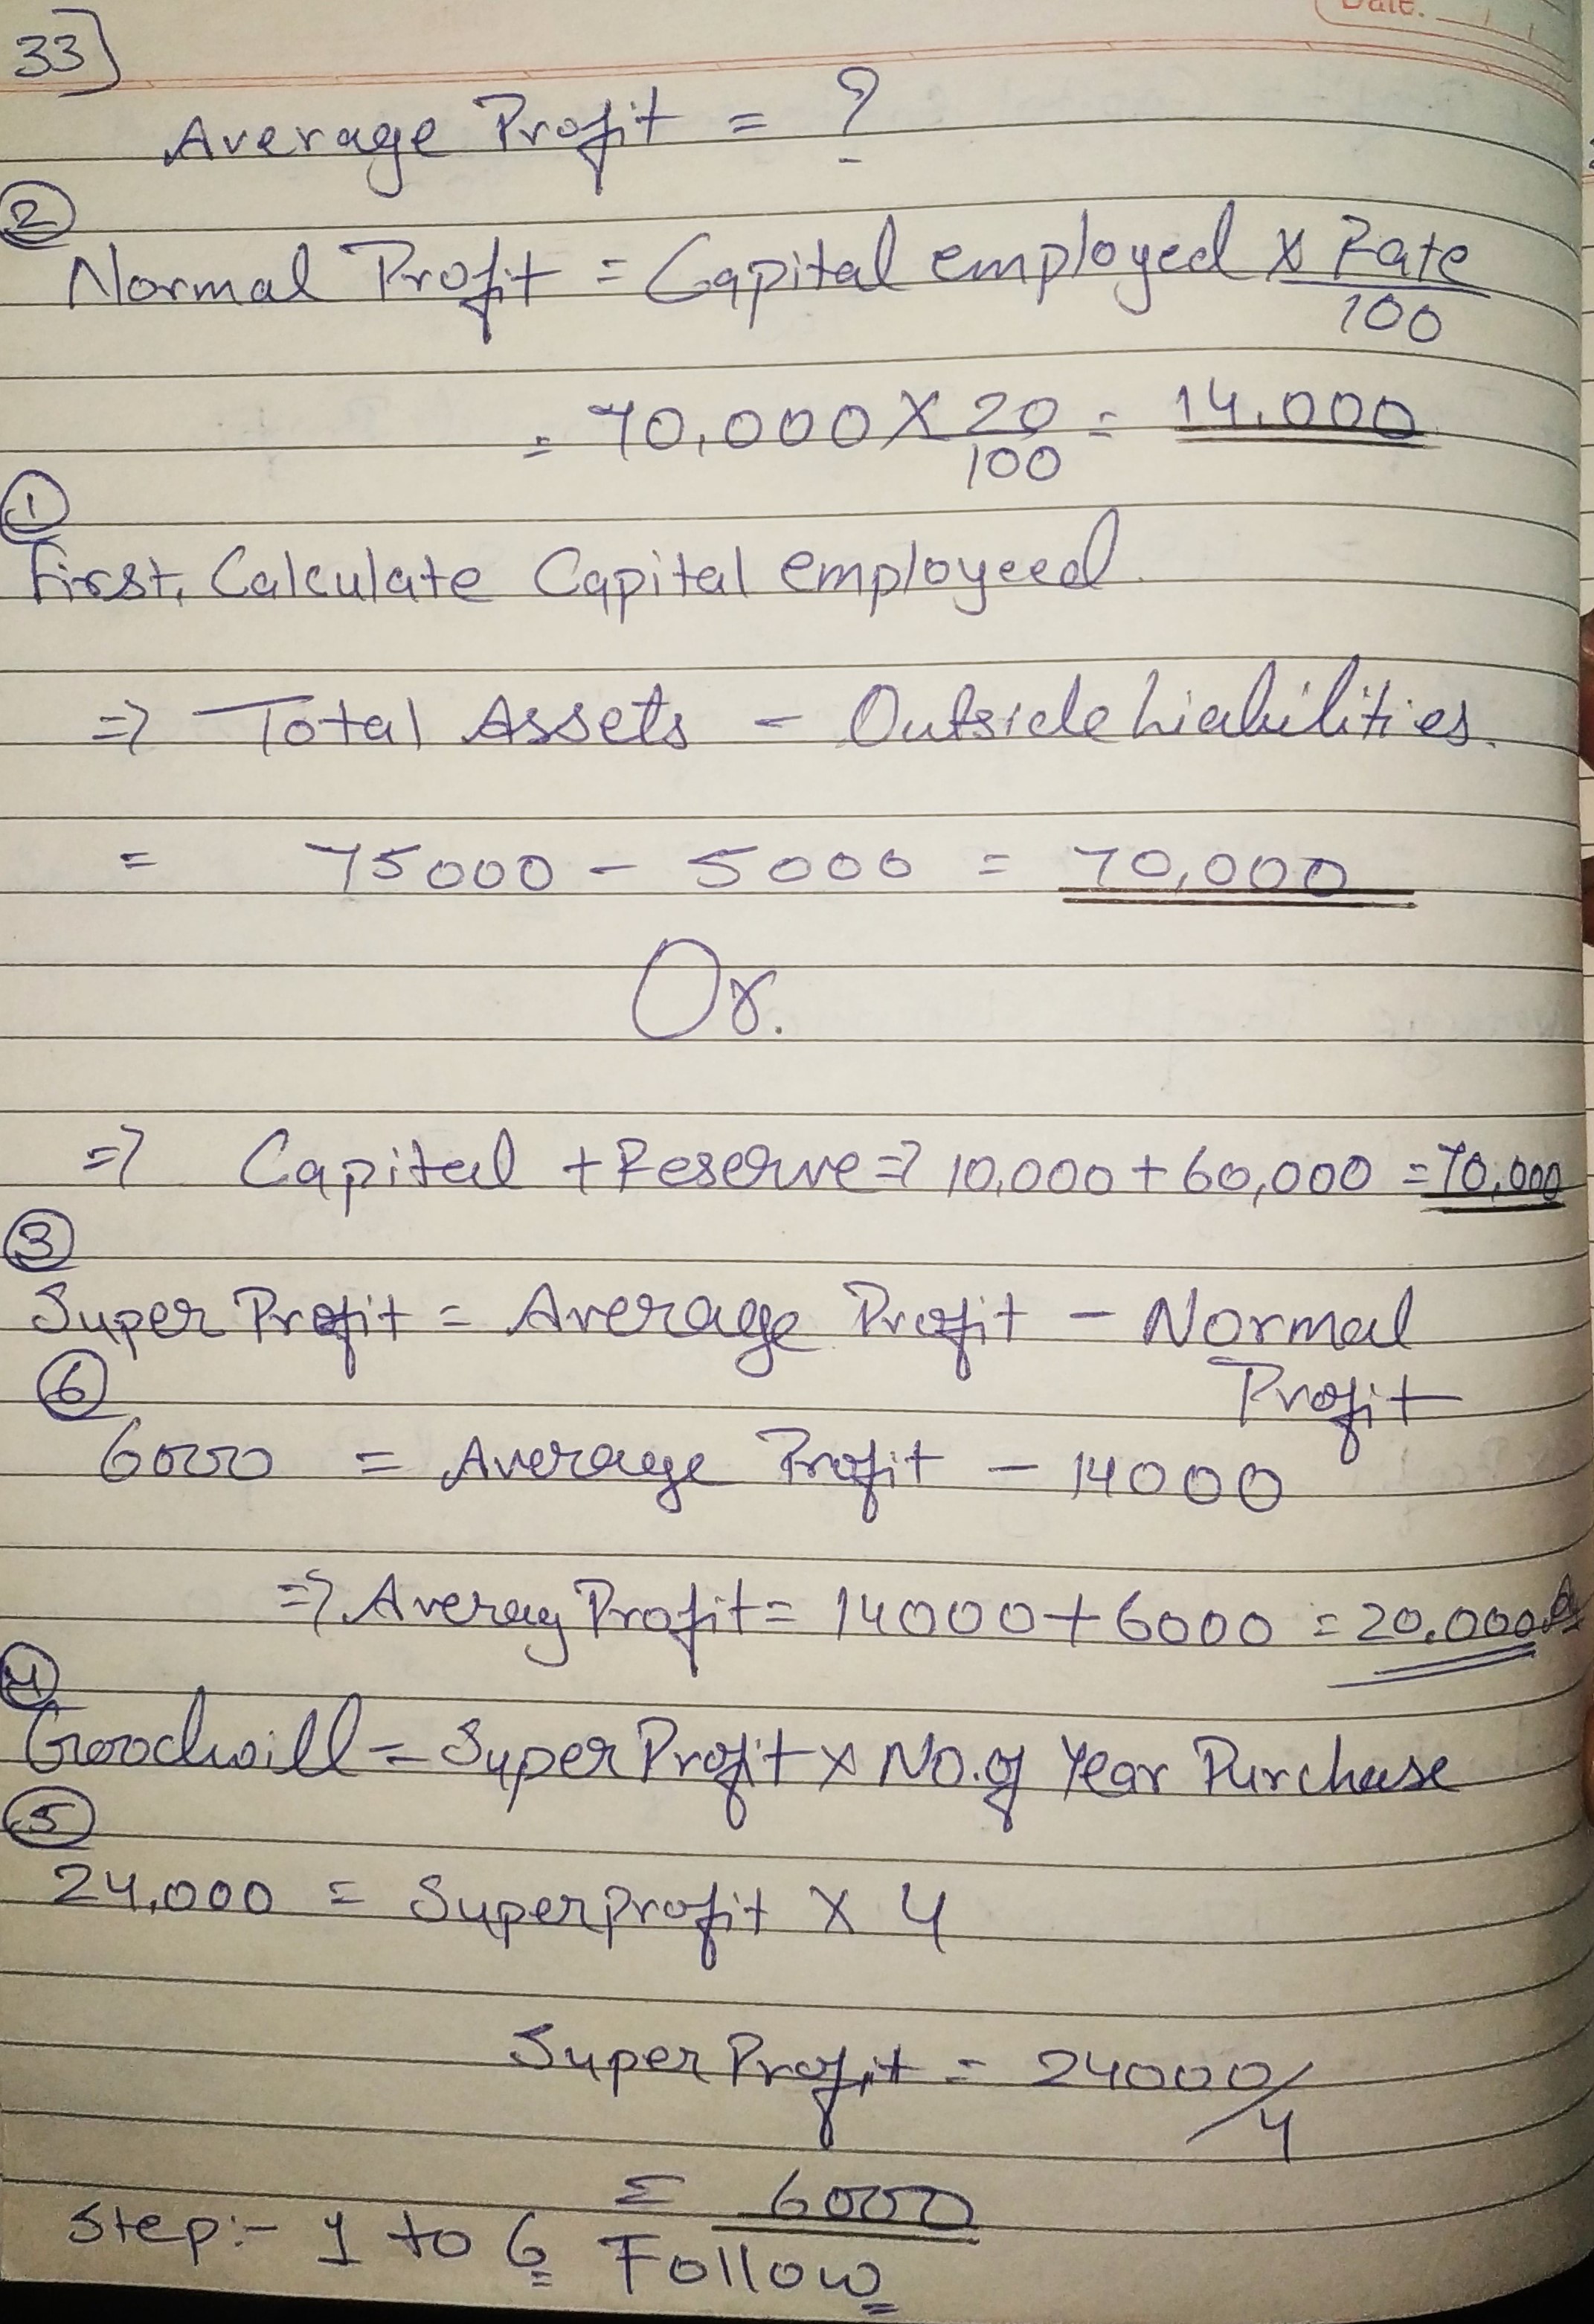 Date.
33]
Average Profit = ?
②
Normal Profit = Capital employed x Rate/100
= 70,000 X 20/100 = 14,000
①
First, Calculate Capital employeed.
=> Total Assets - Outside Liabilities.
= 75000 - 5000 = 70,000
Or.
=> Capital + Reserve => 10,000 + 60,000 = 70,000
③
Super Profit = Average Profit - Normal
Profit
⑥
6000 = Average Profit - 14000
=> Averag Profit = 14000 + 6000 = 20,000
④
Goodwill = Super Profit x No. of Year Purchase
⑤
24,000 = Superprofit X 4
Super Profit = 24000/4
= 6000
Step:- 1 to 6 Follow